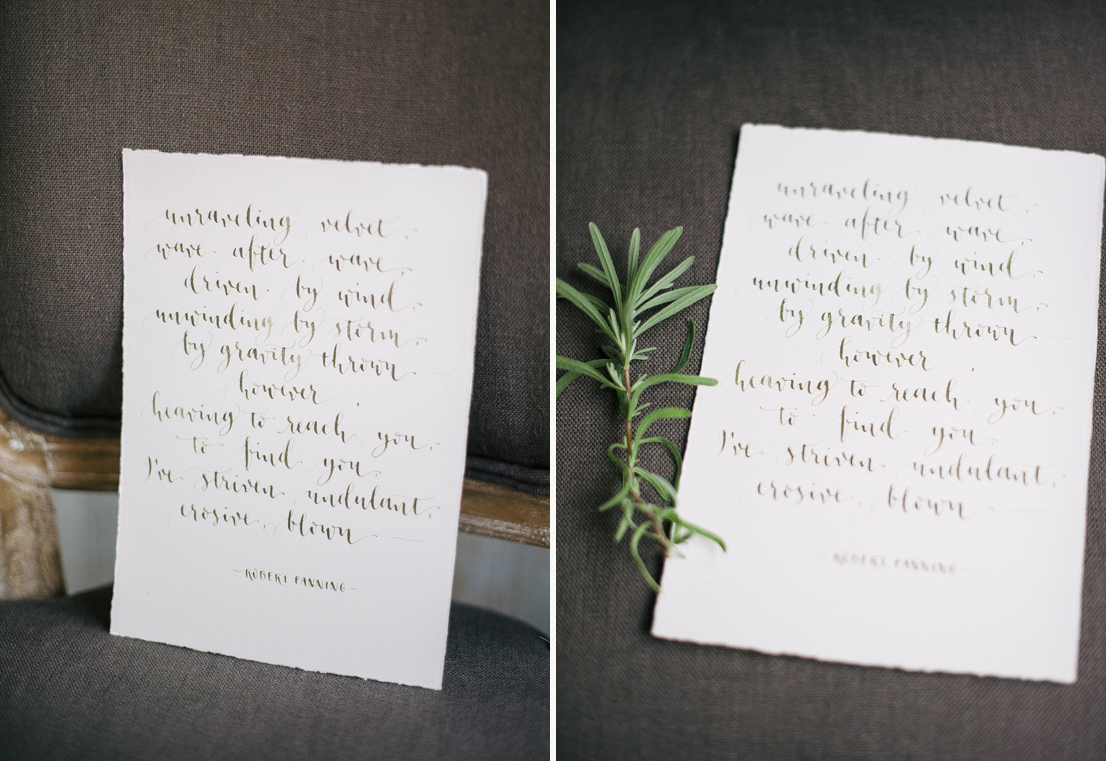 unraveling velvet,
wave after wave,
driven by wind,
unwinding by storm,
by gravity thrown
however,
heaving to reach you,
to find you,
I've striven undulant,
erosive, blown—
—ROBERT FANNING—
unraveling velvet,
wave after wave,
driven by wind,
unwinding by storm,
by gravity thrown
however,
heaving to reach you,
to find you,
I've striven undulant,
erosive, blown—
—ROBERT FANNING—